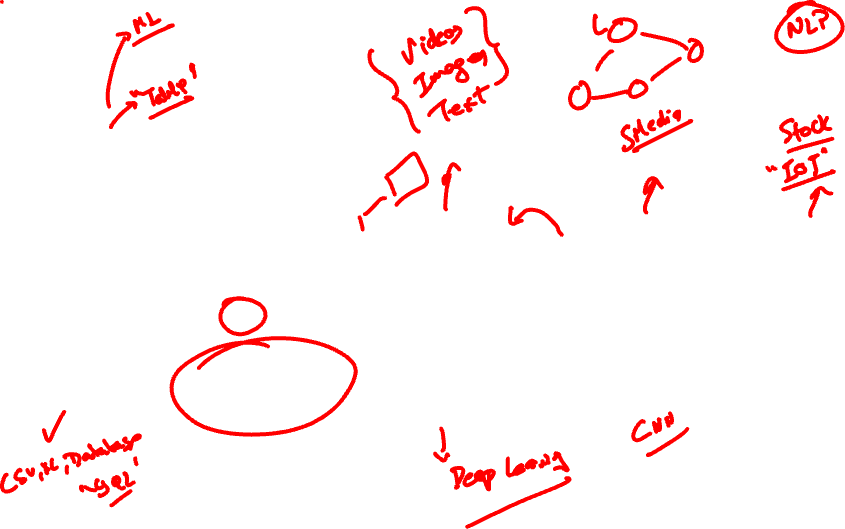 ML
"Table"
Videos
Images
Text
SMedia
NLP
Stock
"IOT"
CSV, XL, Database
Deep Learning
CNN